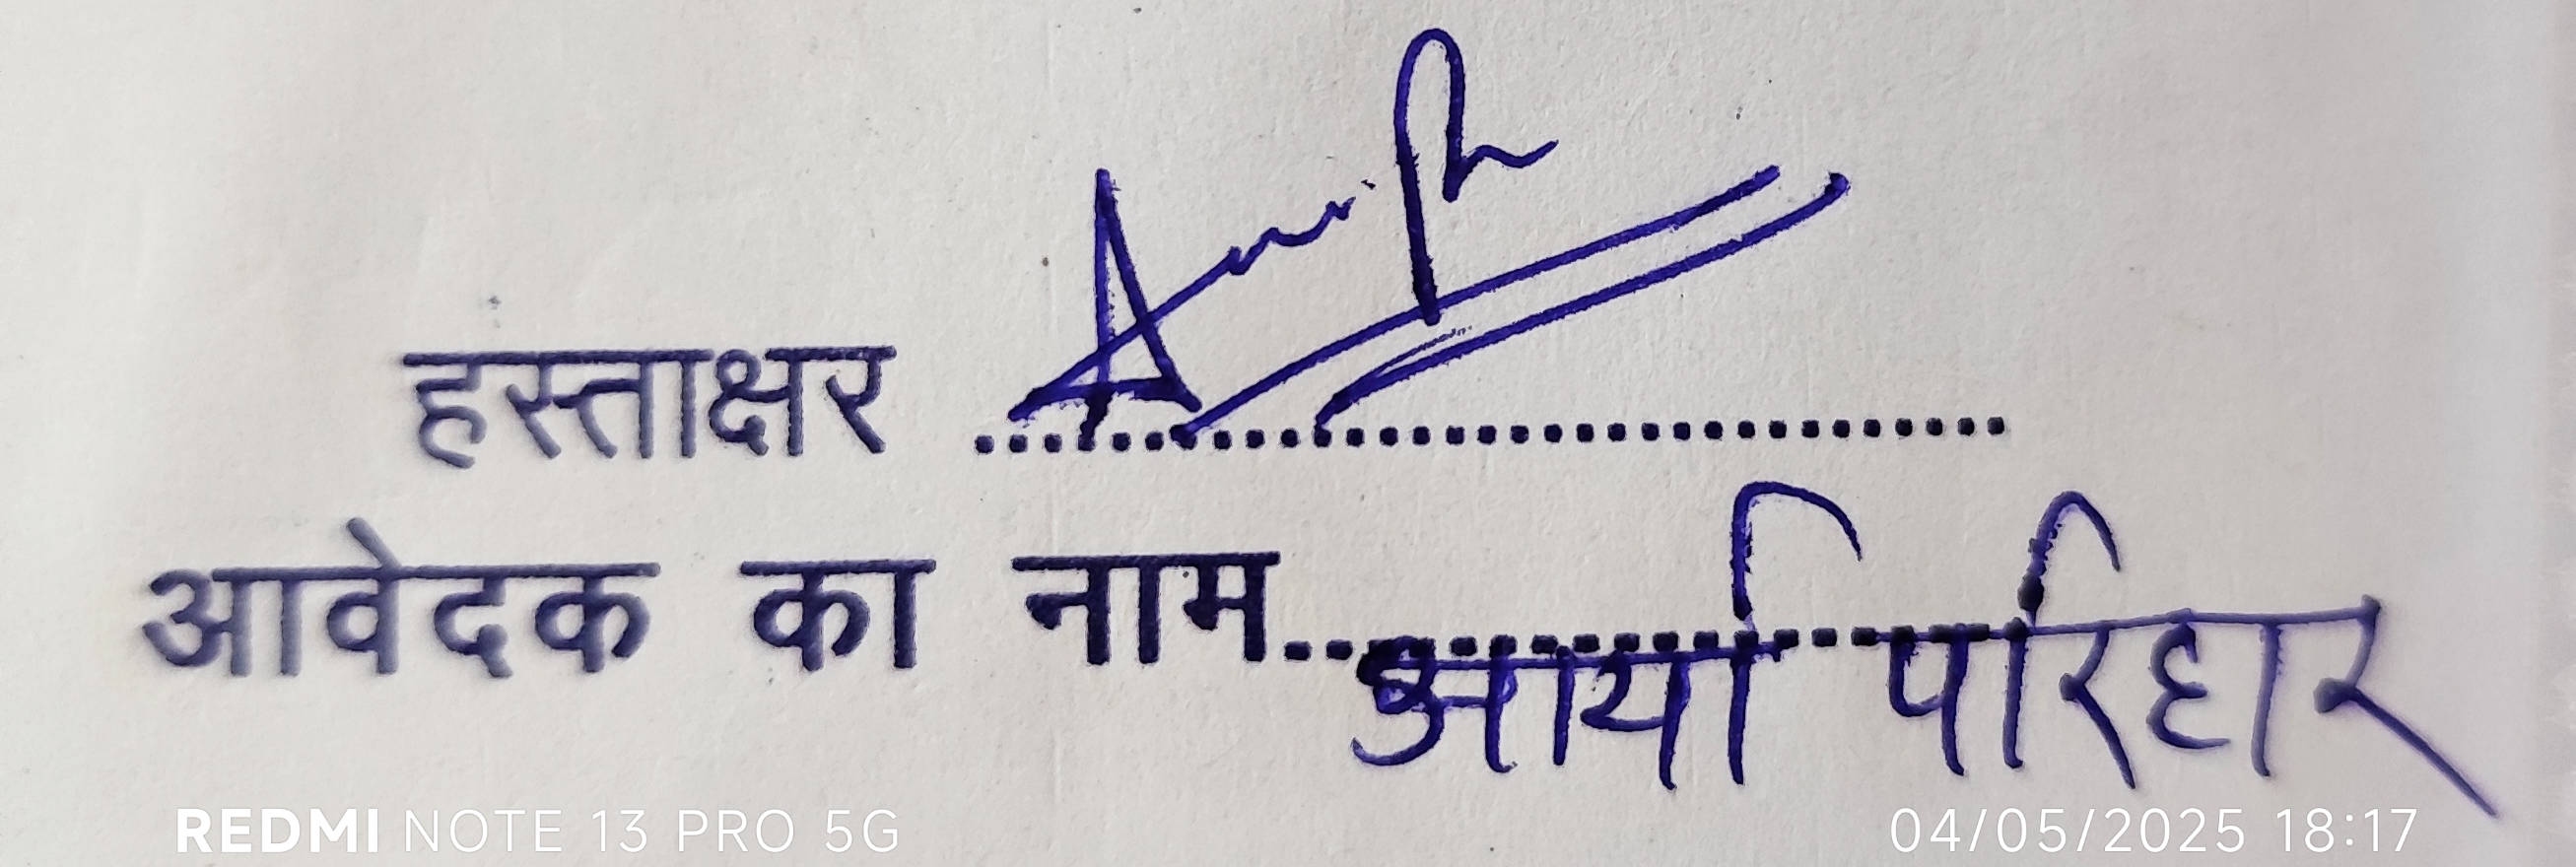 हस्ताक्षर ..............................
आवेदक का नाम.................. आर्या परिहार
REDMI NOTE 13 PRO 5G
04/05/2025 18:17